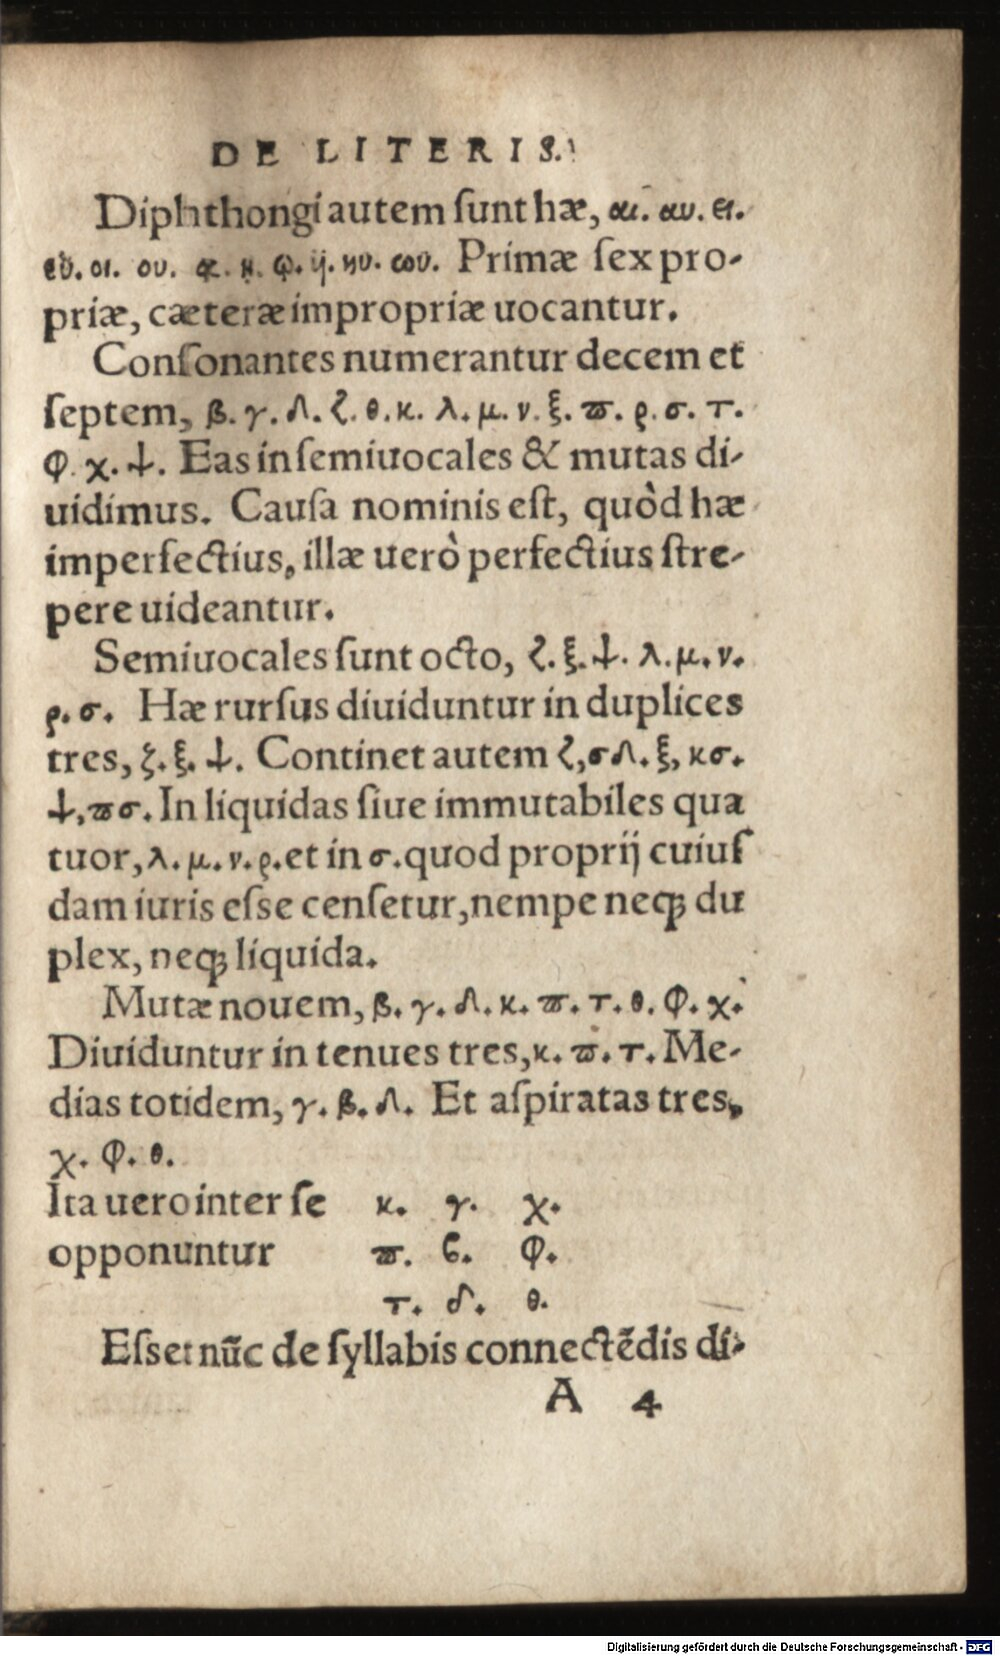 DE LITERIS.
Diphthongi autem ſunt hæ, αι. αυ. ει.
ευ. οι. ου. ᾳ. ῃ. ῳ. ηυ. ωυ. Primæ ſex pro-
priæ, cæteræ impropriæ uocantur.
Conſonantes numerantur decem et
ſeptem, β. γ. δ. ζ. θ. κ. λ. μ. ν. ξ. ϖ. ρ. σ. τ.
φ. χ. ψ. Eas in ſemiuocales & mutas di-
uidimus. Cauſa nominis eſt, quòd hæ
imperfectius, illæ uerò perfectius ſtre-
pere uideantur.
Semiuocales ſunt octo, ζ. ξ. ψ. λ. μ. ν.
ρ. σ. Hæ rurſus diuiduntur in duplices
tres, ζ. ξ. ψ. Continet autem ζ, σδ. ξ, κσ.
ψ, ϖσ. In liquidas ſiue immutabiles qua
tuor, λ. μ. ν. ρ. et in σ. quod proprij cuiuſ
dam iuris eſse cenſetur, nempe neqꝫ du
plex, neqꝫ liquida.
Mutæ nouem, β. γ. δ. κ. ϖ. τ. θ. φ. χ.
Diuiduntur in tenues tres, κ. ϖ. τ. Me-
dias totidem, γ. β. δ. Et aſpiratas tres,
χ. φ. θ.
Ita uero inter ſe κ. γ. χ.
opponuntur ϖ. ϐ. φ.
τ. δ. θ.
Eſset nūc de ſyllabis connectēdis di-
A 4
Digitalisierung gefördert durch die Deutsche Forschungsgemeinschaft - DFG